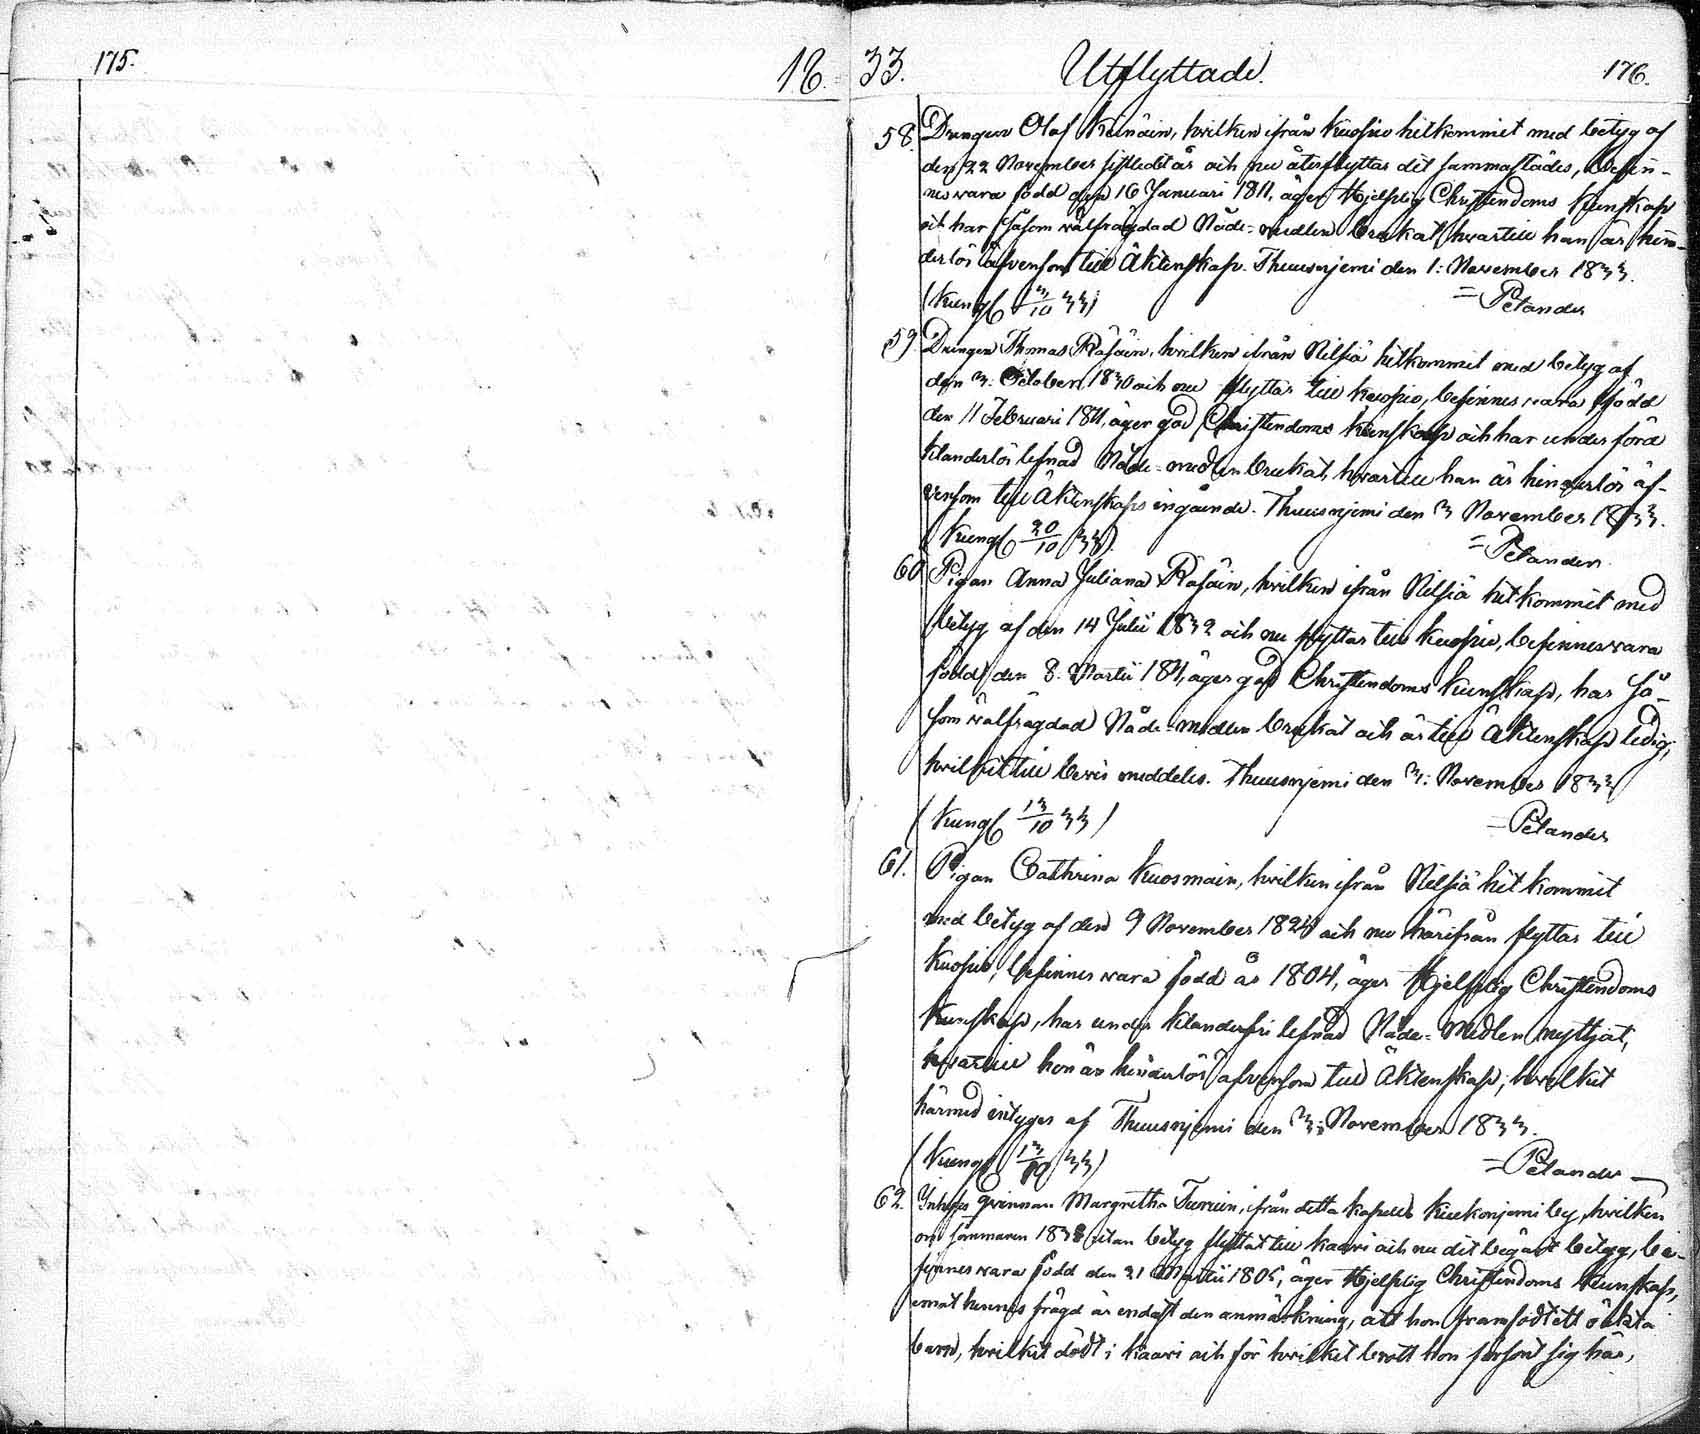 175.
18 33. Utflyttade. 176.
58. Drengen Olof Keinäin, hvilken ifrån Kuopio hitkommit med betyg af
den 22 November sistledit år och nu återflyttar dit sammastädes, befin-
nes vara född den 16 Januari 1811, äger Hjelplig Christendoms Kunskap
och har såsom välfrägdad Nåde-medlen brukat hvartill han är hin-
derlös äfvensom till Äktenskap. Thuusnjemi den 1: November 1833.
(Kungl. 13/10 33) = Petander
59. Drengen Thomas Räsäin, hvilken ifrån Nilsiä hitkommit med betyg af
den 3. October 1830 och nu flyttar till Kuopio, befinnes vara född
den 11 Februari 1811, äger god Christendoms kunskap och har under förd
klanderlös lefnad Nåde-medlen brukat, hvartill han är hinderlös äf-
vensom till Äktenskaps ingående. Thuusnjemi den 3 November 1833.
(Kungl. 20/10 33). = Petander.
60 Pigan Anna Juliana Räsäin, hvilken ifrån Nilsiä hitkommit med
betyg af den 14 Julii 1832 och nu flyttar till Kuopio, befinnes vara
född den 8. Martii 1811, äger god Christendoms Kunskap, har så-
som välfrägdad Nåde-medlen brukat och är till Äktenskap ledig,
hvilket till bevis meddeles. Thuusnjemi den 3: November 1833
(Kungl. 13/10 33) = Petander
61. Pigan Cathrina Kuosmain, hvilken ifrån Nilsiä hitkommit
med betyg af den 9 November 1823 och nu härifrån flyttar till
Kuopio, befinnes vara född år 1804, äger Hjelplig Christendoms
Kunskap, har under klanderfri lefnad Nåde-Medlen nyttjat,
hvartill hon är hinderlös äfvensom till Äktenskap; hvilket
härmed intygas af Thuusnjemi den 3: November 1833.
(Kungl. 13/10 33) = Petander
62. Inhyses qvinnan Margretha Turuin, ifrån detta kapell Kiukonjemi by, hvilken
om sommaren 1832 utan betyg flyttat till Kaavi och nu dit begärt betyg, be-
finnes vara född den 21 Martii 1805, äger Hjelplig Christendoms kunskap,
emot hennes frägd är endast den anmärkning, att hon framfödt ett oäkta
barn, hvilket dödt i Kaavi och för hvilket brott hon försont sig här,